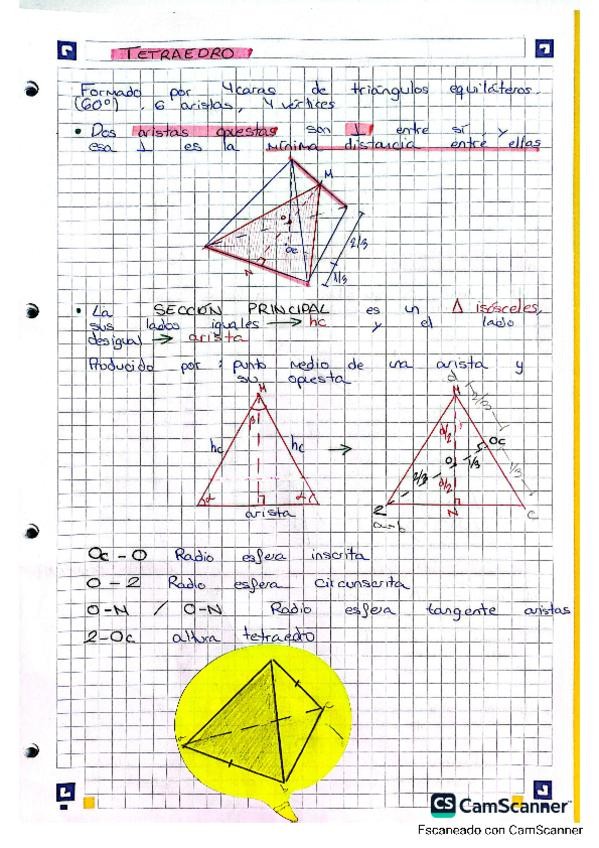 TETRAEDRO
Formado por 4 caras de triángulos equiláteros.
(60º), 6 aristas, 4 vértices
• Dos aristas opuestas son ⊥ entre sí, y
esa ⊥ es la mínima distancia entre ellas
M
O
Oc
N
2/3
1/3
• La SECCIÓN PRINCIPAL es un Δ isósceles,
sus lados iguales → hc y el lado
desigual → arista
Producido por: punto medio de una arista y
su opuesta
M
β
hc
hc
α
α
arista
→
d
M
2/3
d/2
Oc
O
1/3
1/3
2/3
d/2
2
N
C
a-b
Oc - O Radio esfera inscrita
O - 2 Radio esfera circunscrita
O-N / O-N Radio esfera tangente aristas
2-Oc altura tetraedro
CS CamScanner
Escaneado con CamScanner